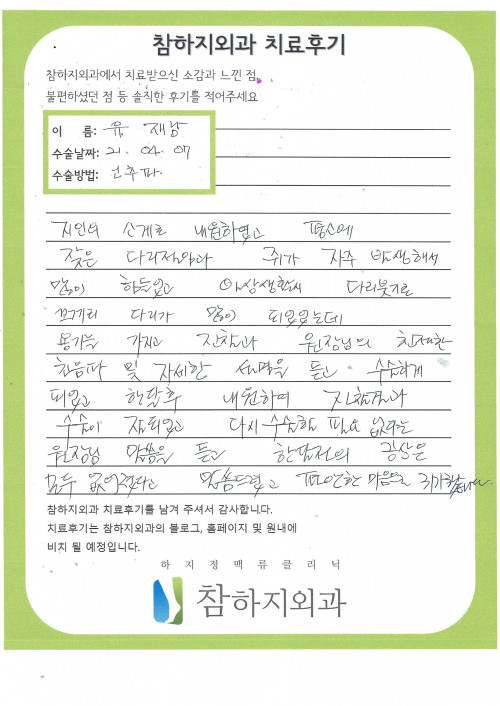 참하지외과 치료후기
참하지외과에서 치료받으신 소감과 느낀 점,
불편하셨던 점 등 솔직한 후기를 적어주세요
이 름: 유 재남
수술날짜: 21. 04. 07
수술방법: 초음파
지인의 소개로 내원하였고 평소에
잦은 다리저림과 쥐가 자주 발생해서
많이 힘들었고 일상생활시 다리붓기로
다리가 많이 되었었는데
용기를 가지고 진찰과 원장님의 친절한
초음파 및 자세한 설명을 듣고 수술하게
되었고 한달후 내원하여 진찰결과
수술이 잘되었고 다시 수술할 필요 없다는
원장님 말씀을 듣고 한달전의 증상은
모두 없어졌다고 말씀드렸고 편안한 마음으로 귀가했습니다.
참하지외과 치료후기를 남겨 주셔서 감사합니다.
치료후기는 참하지외과의 블로그, 홈페이지 및 원내에
비치 될 예정입니다.
하 지 정 맥 류 클 리 닉
참하지외과